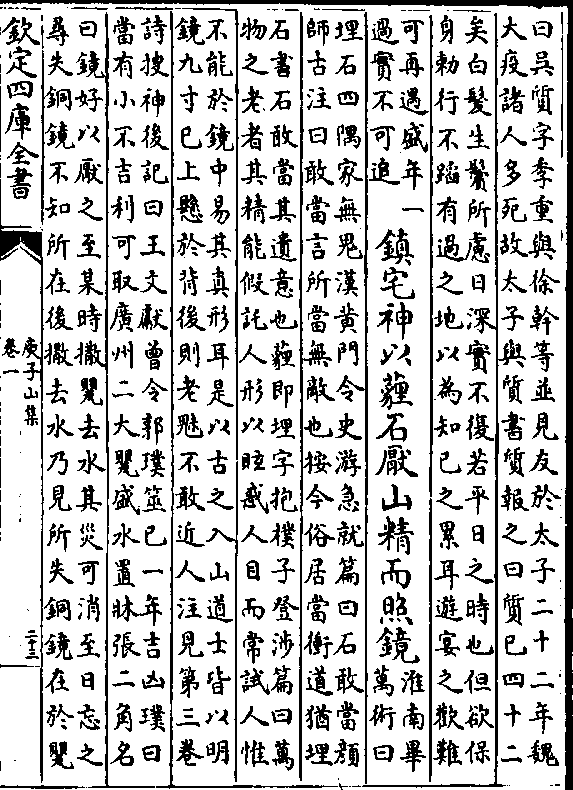 曰吳質字季重與徐幹等並見友於太子二十二年魏
大疫諸人多死故太子與質書質報之曰質已四十二
矣白髮生鬢所慮日深實不復若平日之時也但欲保
身勅行不蹈有過之地以為知已之累耳遊宴之歡難
可再遇盛年一
過實不可追
鎮宅神以薶石厭山精而照鏡
淮南畢
萬術曰
埋石四隅家無鬼漢黄門令史游急就篇曰石敢當顔
師古注曰敢當言所當無敵也按今俗居當衝道猶埋
石書石敢當其遺意也薶即埋字抱樸子登涉篇曰萬
物之老者其精能假託人形以眩惑人目而常試人惟
不能於鏡中易其真形耳是以古之入山道士皆以明
鏡九寸已上懸於背後則老魅不敢近人注見第三卷
詩搜神後記曰王文獻曾令郭璞筮已一年吉凶璞曰
當有小不吉利可取廣州二大甖盛水置牀張二角名
曰鏡好以厭之至某時撒甖去水其災可消至日忘之
尋失銅鏡不知所在後撒去水乃見所失銅鏡在於甖
欽定四庫全書
庾子山集
卷一
二十三